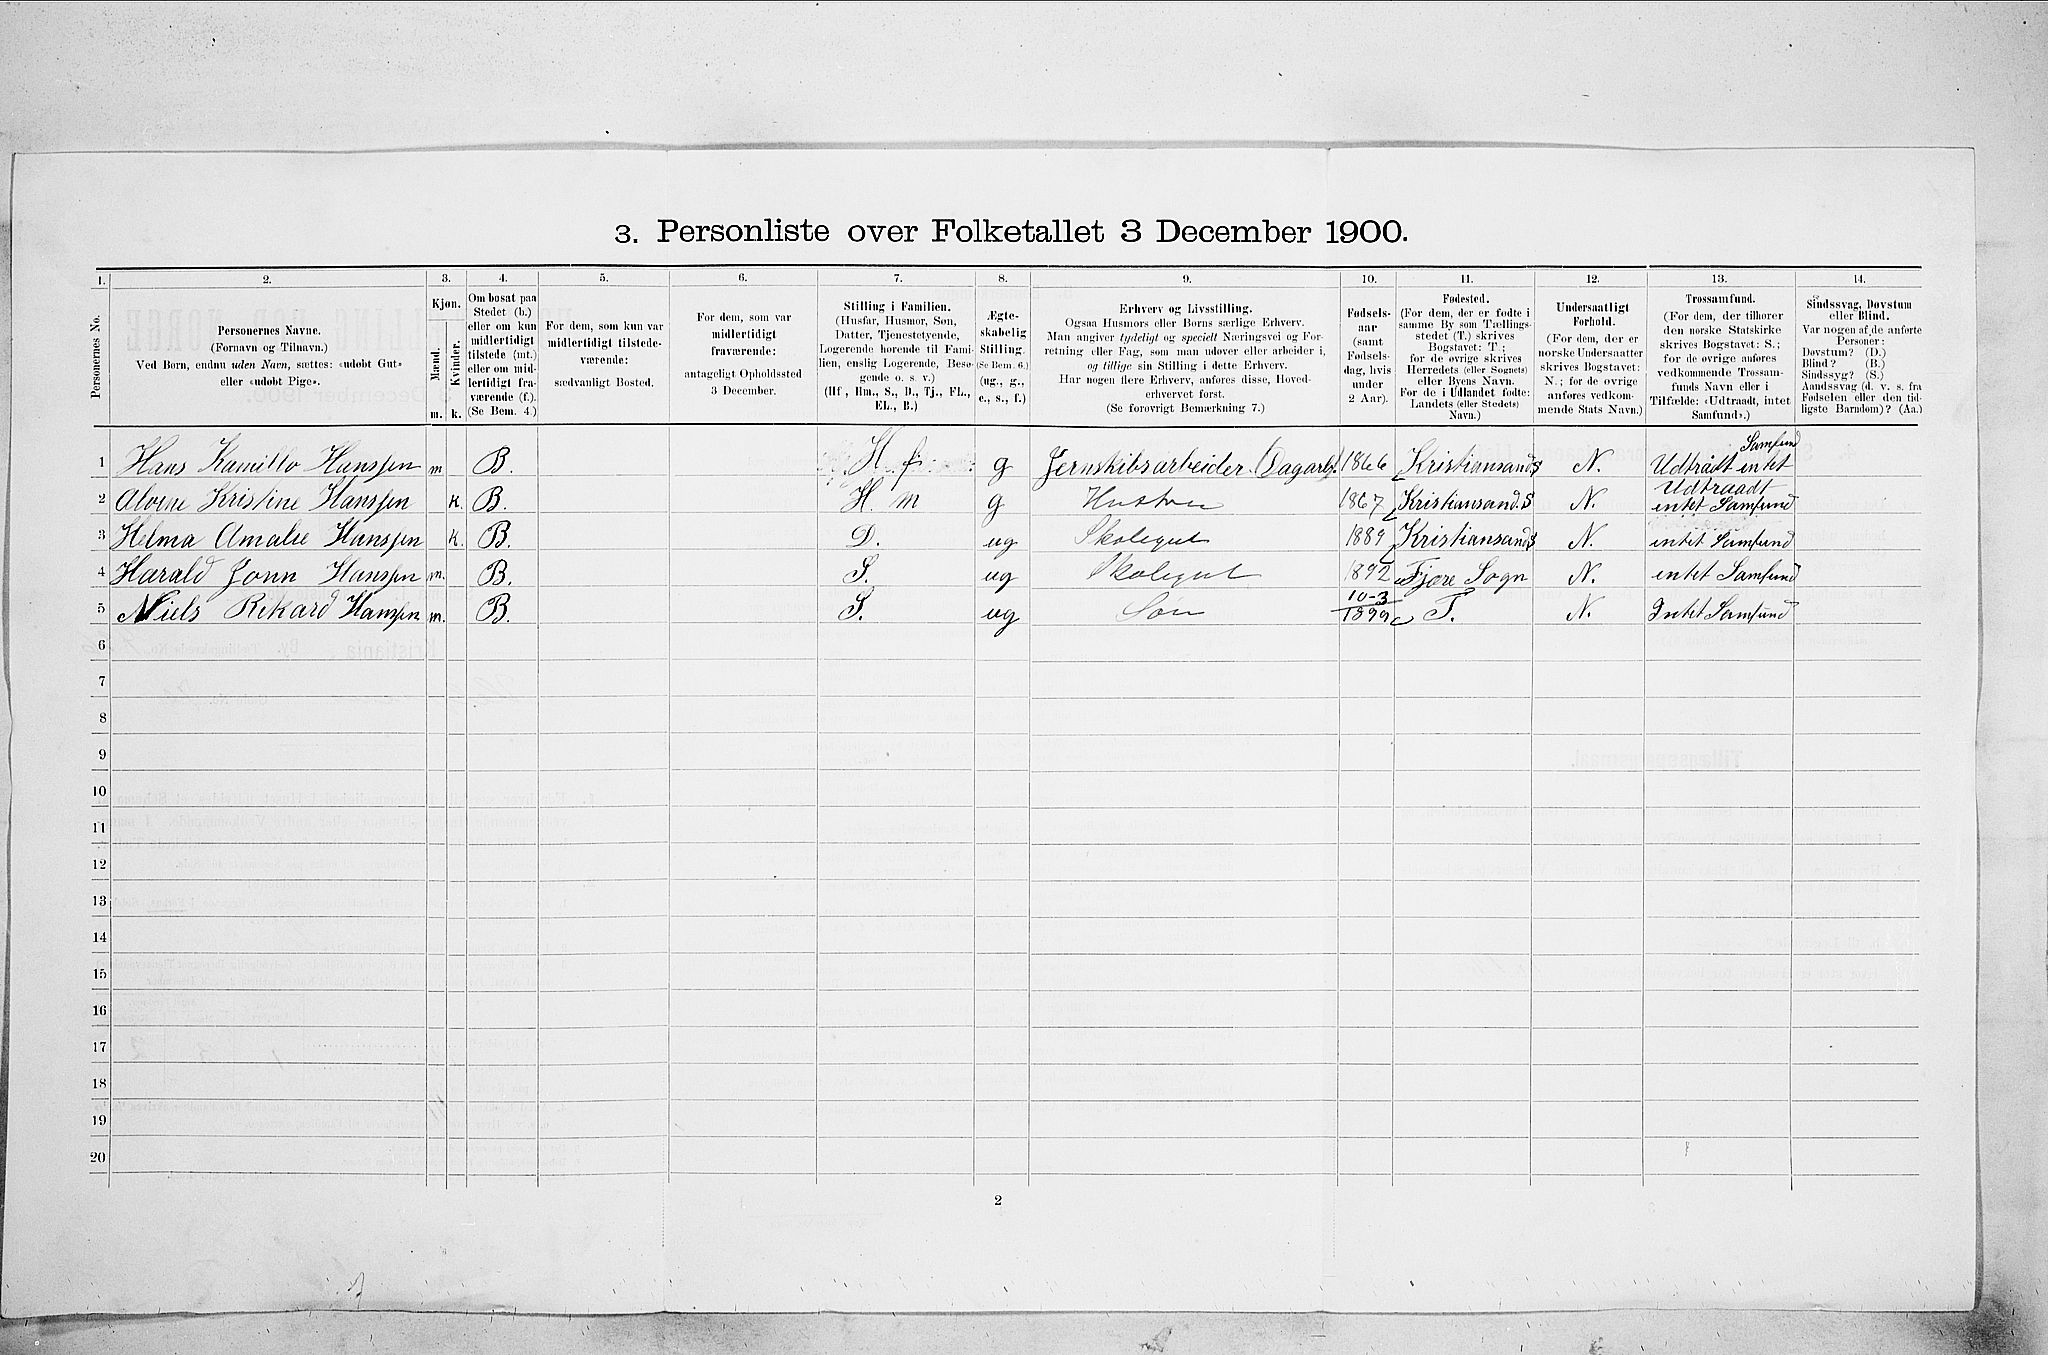 3. Personliste over Folketallet 3 December 1900.
1. 2. 3. 4. 5. 6. 7. 8. 9. 10. 11. 12. 13. 14.
Personernes No.
Personernes Navne.
(Fornavn og Tilnavn.)
Ved Børn, endnu uden Navn, sættes: «udøbt Gut»
eller «udøbt Pige».
Kjøn.
Mænd.
Kvinder.
m. k.
Om bosat paa
Stedet (b.)
eller om kun
midlertidigt
tilstede (mt.)
eller om mid-
lertidigt fra-
værende (f.).
(Se Bem. 4.)
For dem, som kun var
midlertidigt tilstede-
værende:
sædvanligt Bosted.
For dem, som var
midlertidigt
fraværende:
antageligt Opholdssted
3 December.
Stilling i Familien.
(Husfar, Husmor, Søn,
Datter, Tjenestetyende,
Logerende hørende til Fami-
lien, enslig Logerende, Besø-
gende o. s. v.)
(Hf., Hm., S., D., Tj., FL.,
EL., B.)
Ægte-
skabelig
Stilling.
(Se Bem. 6.)
(ug., g.,
e., s., f.)
Erhverv og Livsstilling.
Ogsaa Husmors eller Børns særlige Erhverv.
Man angiver tydeligt og specielt Næringsvei og For-
retning eller Fag, som man udøver eller arbeider i,
og tillige sin Stilling i dette Erhverv.
Har nogen flere Erhverv, anføres disse, Hoved-
erhvervet først.
(Se forøvrigt Bemærkning 7.)
Fødsels-
aar
(samt
Fødsels-
dag, hvis
under
2 Aar).
Fødested.
(For dem, der er fødte i
samme By som Tællings-
stedet (T.) skrives
Bogstavet: T.;
for de øvrige skrives
Herredets (eller Sognets)
eller Byens Navn.
For de i Udlandet fødte:
Landets (eller Stedets)
Navn.)
Undersaatligt
Forhold.
(For dem, der er
norske Undersaatter
skrives Bogstavet:
N.; for de øvrige
anføres vedkom-
mende Stats Navn.)
Trossamfund.
(For dem, der tilhører
den norske Statskirke
skrives Bogstavet: S.;
for de øvrige anføres
vedkommende Trossam-
funds Navn eller i
Tilfælde: «Udtraadt, intet
Samfund».)
Sindssvag, Døvstum
eller Blind.
Var nogen af de anførte
Personer:
Døvstum? (D.)
Blind? (B.)
Sindssyg? (S.)
Aandssvag (d. v. s. fra
Fødselen eller den tid-
ligste Barndom)? (Aa.)
1 Hans Kamillo Hanssen m B. H. f. g Jernskibsarbeider (Dagarb). 1866 Kristiansand S N. Udtrådt intet Samfund
2 Alvine Kristine Hanssen k. B. H m g Hustru 1867 Kristiansand S N. Udtraadt intet Samfund
3 Helma Amalie Hanssen k. B. D. ug Skolegut 1889 Kristiansand S N. intet Samfund
4 Harald Jonn Hanssen m. B. S. ug Skolegut 1892 Fjære Sogn N. intet Samfund
5 Niels Rikard Hanssen m. B. S. ug Søn 10-3 1899 T. N. Intet Samfund
6
7
8
9
10
11
12
13
14
15
16
17
18
19
20
2